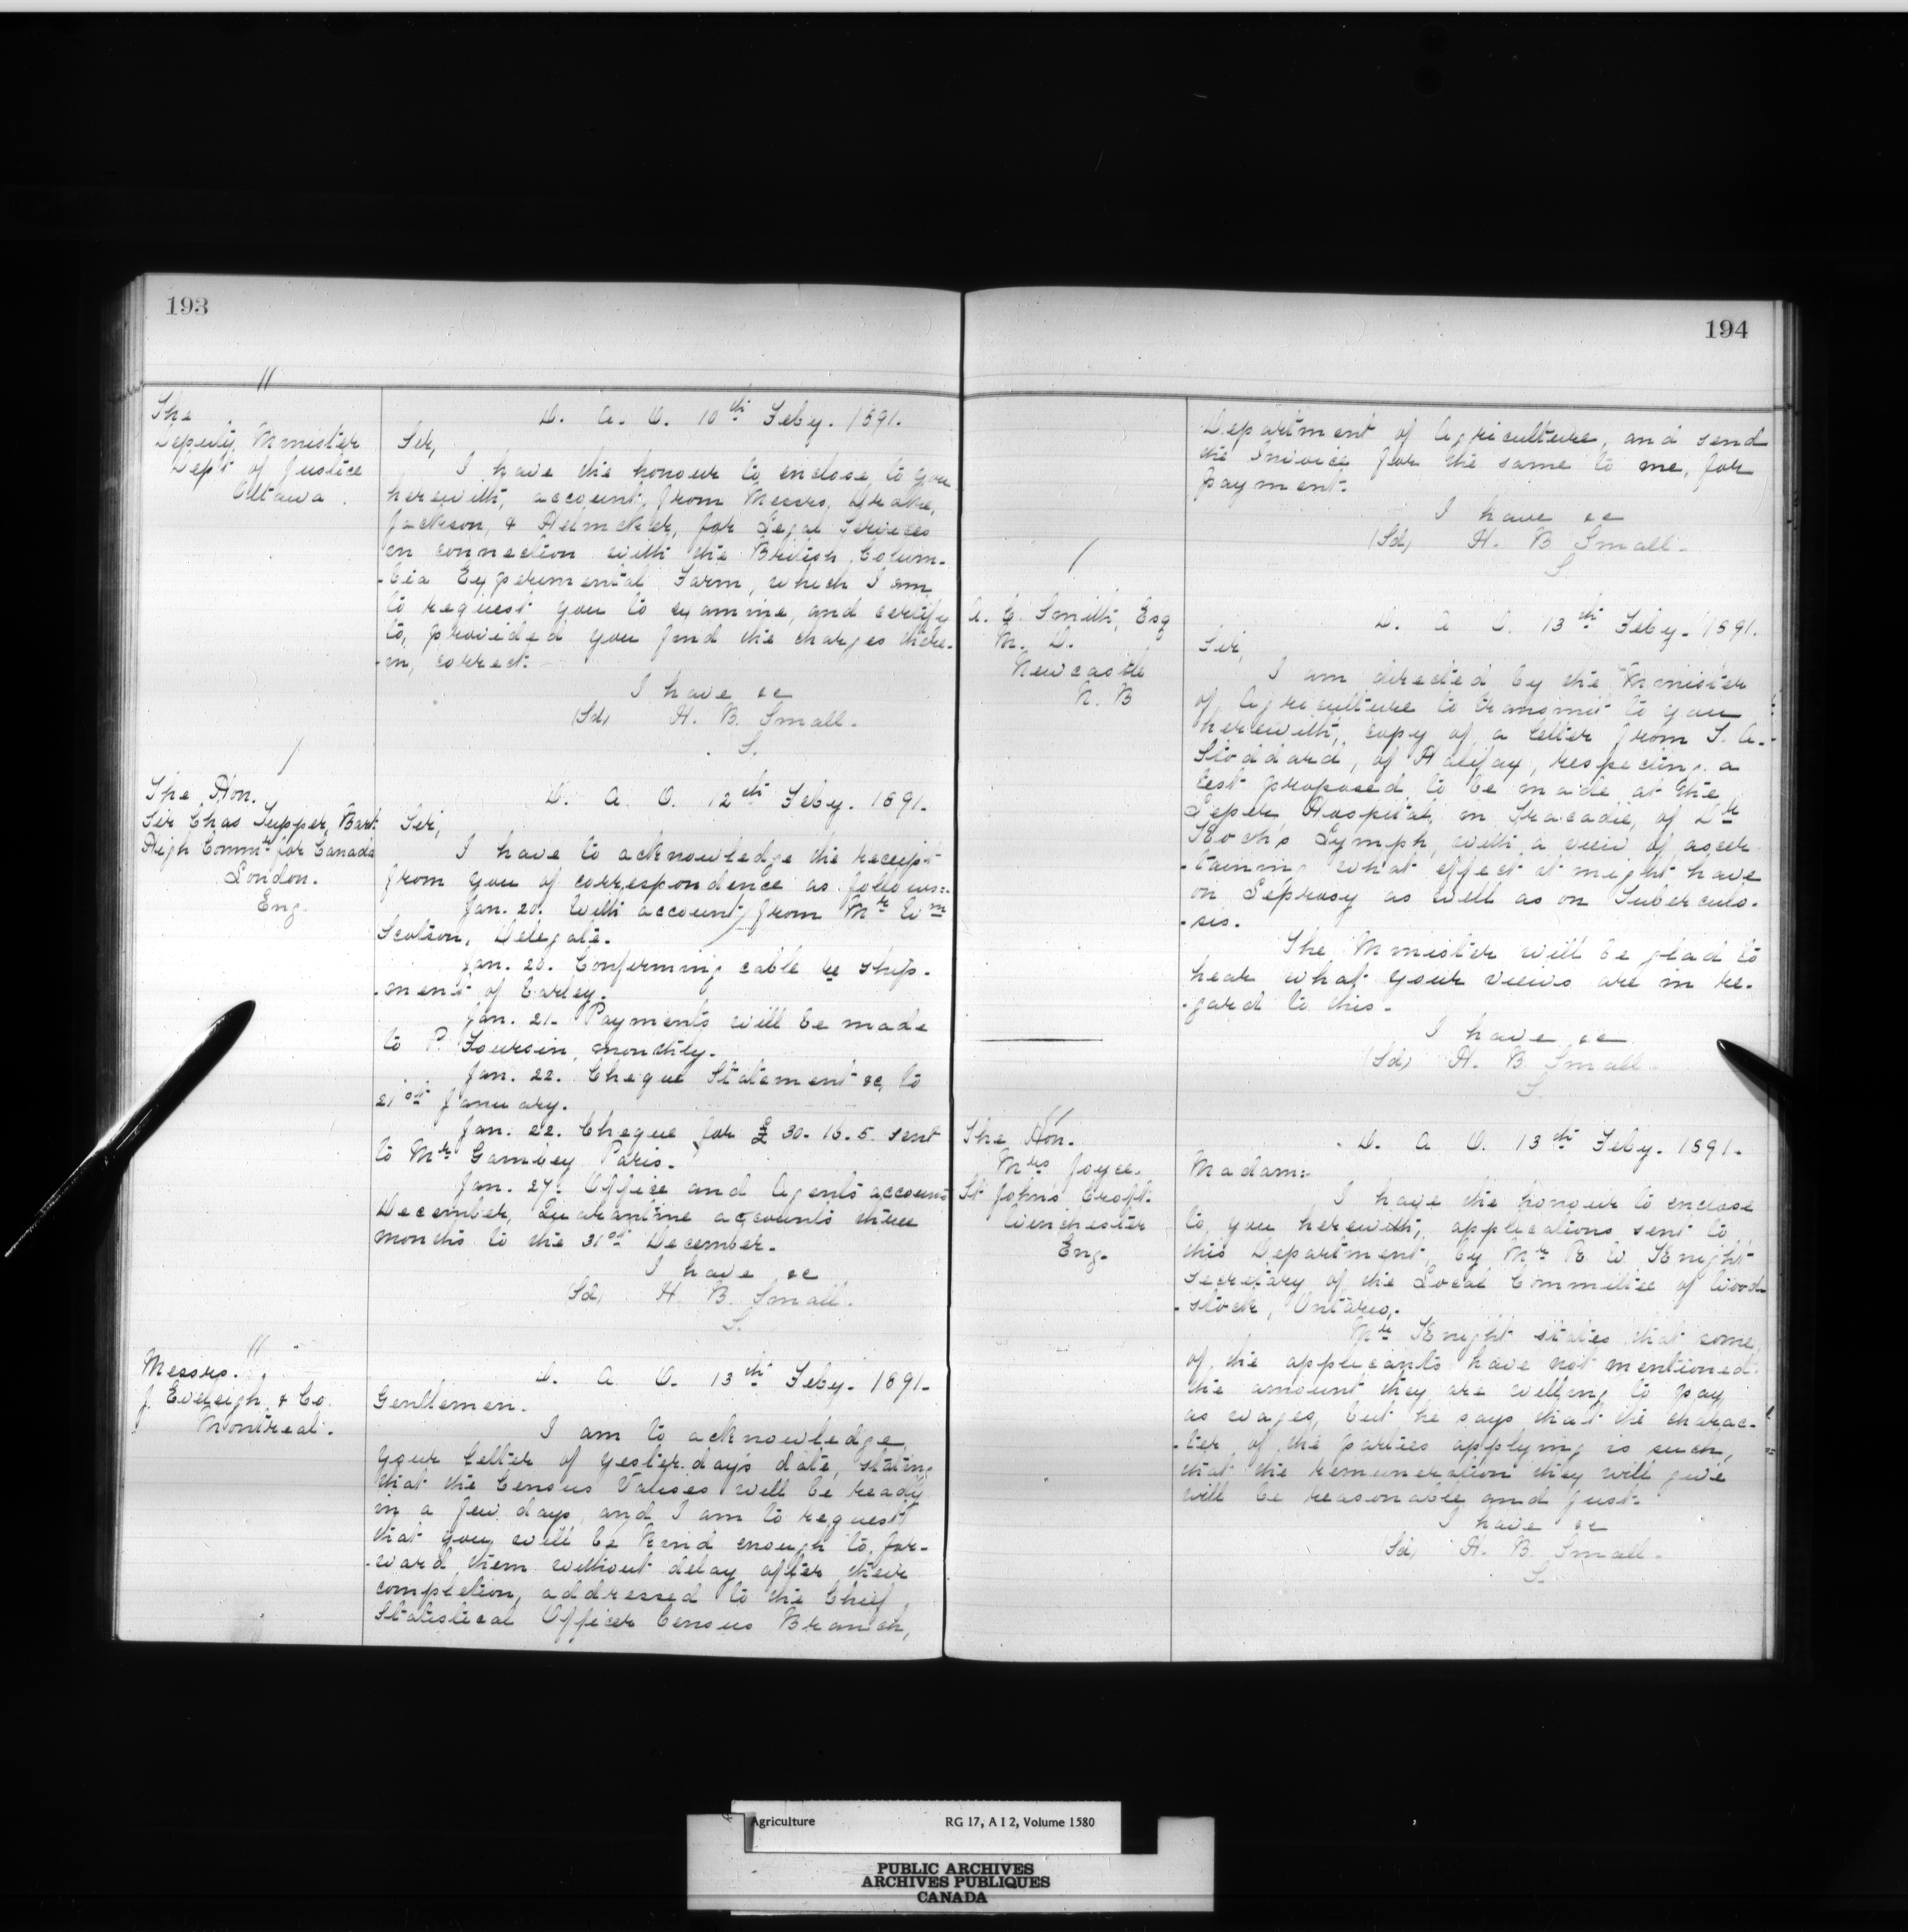 193
//
The
Deputy Minister
Dept of Justice
Ottawa.
D. A. O. 10th Feby. 1891.
Sir,
I have the honour to enclose, to you
herewith, account, from Messrs. Drake,
Jackson, & Helmcken, for Legal Services
in connection with the British Colum-
-bia Experimental Farm, which I am
to request you to examine, and certify
to, provided you find the charges there-
-in, correct.
I have &c
(Sd) H. B. Small.
S.
/
The Hon.
Sir Chas Tupper, Bart.
High Commr for Canada
London.
Eng.
D. A. O. 12th Feby. 1891.
Sir,
I have to acknowledge the receipt
from you of correspondence as follows:-
Jan. 20. With account, from Mr Wm
Scotson, Delegate.
Jan. 20. Confirming cable re ship-
-ment of barley.
Jan. 21. Payments will be made
to P. Foursin, monthly.
Jan. 22. Cheque Statement &c, to
21st January.
Jan. 22. Cheque for £30.16.5. sent
to Mr Gambey Paris.
Jan. 27. Office and Agents accounts
December, Quarantine accounts three
months to the 31st December.
I have &c
(Sd) H. B. Small.
S.
//
Messrs.
J. Eveleigh & Co.
Montreal.
D. A. O. 13th Feby. 1891.
Gentlemen.
I am to acknowledge
your letter of yesterday's date, stating
that the Census Valises will be ready
in a few days, and I am to request
that you will be kind enough to for-
-ward them without delay after their
completion, addressed to the Chief
Statistical Officer Census Branch,
194
Department of Agriculture, and send
the Invoice for the same to me, for
payment.
I have &c
(Sd) H. B Small.
S.
/
A. C. Smith, Esq
M. D.
Newcastle
N. B
D. A O. 13th Feby. 1891.
Sir,
I am directed by the Minister
of Agriculture to transmit to you
herewith, copy of a letter from S. A.
Stoddard, of Halifax, respecting a
test proposed to be made at the
Leper Hospital, in Tracadie, of Dr
Koch's Lymph, with a view of ascer
-taining what effect it might have
on Leprosy as well as on Tuberculo-
-sis.
The Minister will be glad to
hear what your views are in re-
-gard to this.
I have &c
(Sd) H. B. Small.
S.
//
The Hon.
Mrs Joyce.
St John's Croft.
Winchester
Eng.
D. A O. 13th Feby. 1891.
Madam:-
I have the honour to enclose
to you herewith, applications sent to
this Department, by Mr R. W. Knight
Secretary of the Local Committee of Wood-
-stock, Ontario.
Mr Knight states that some
of the applicants have not mentioned
the amount they are willing to pay
as wages, but he says that the charac-
-ter of the parties applying is such,
that the remuneration they will give
will be reasonable and just.
I have &c
(Sd) H. B. Small.
S.
Agriculture RG 17, A I 2, Volume 1580
PUBLIC ARCHIVES
ARCHIVES PUBLIQUES
CANADA